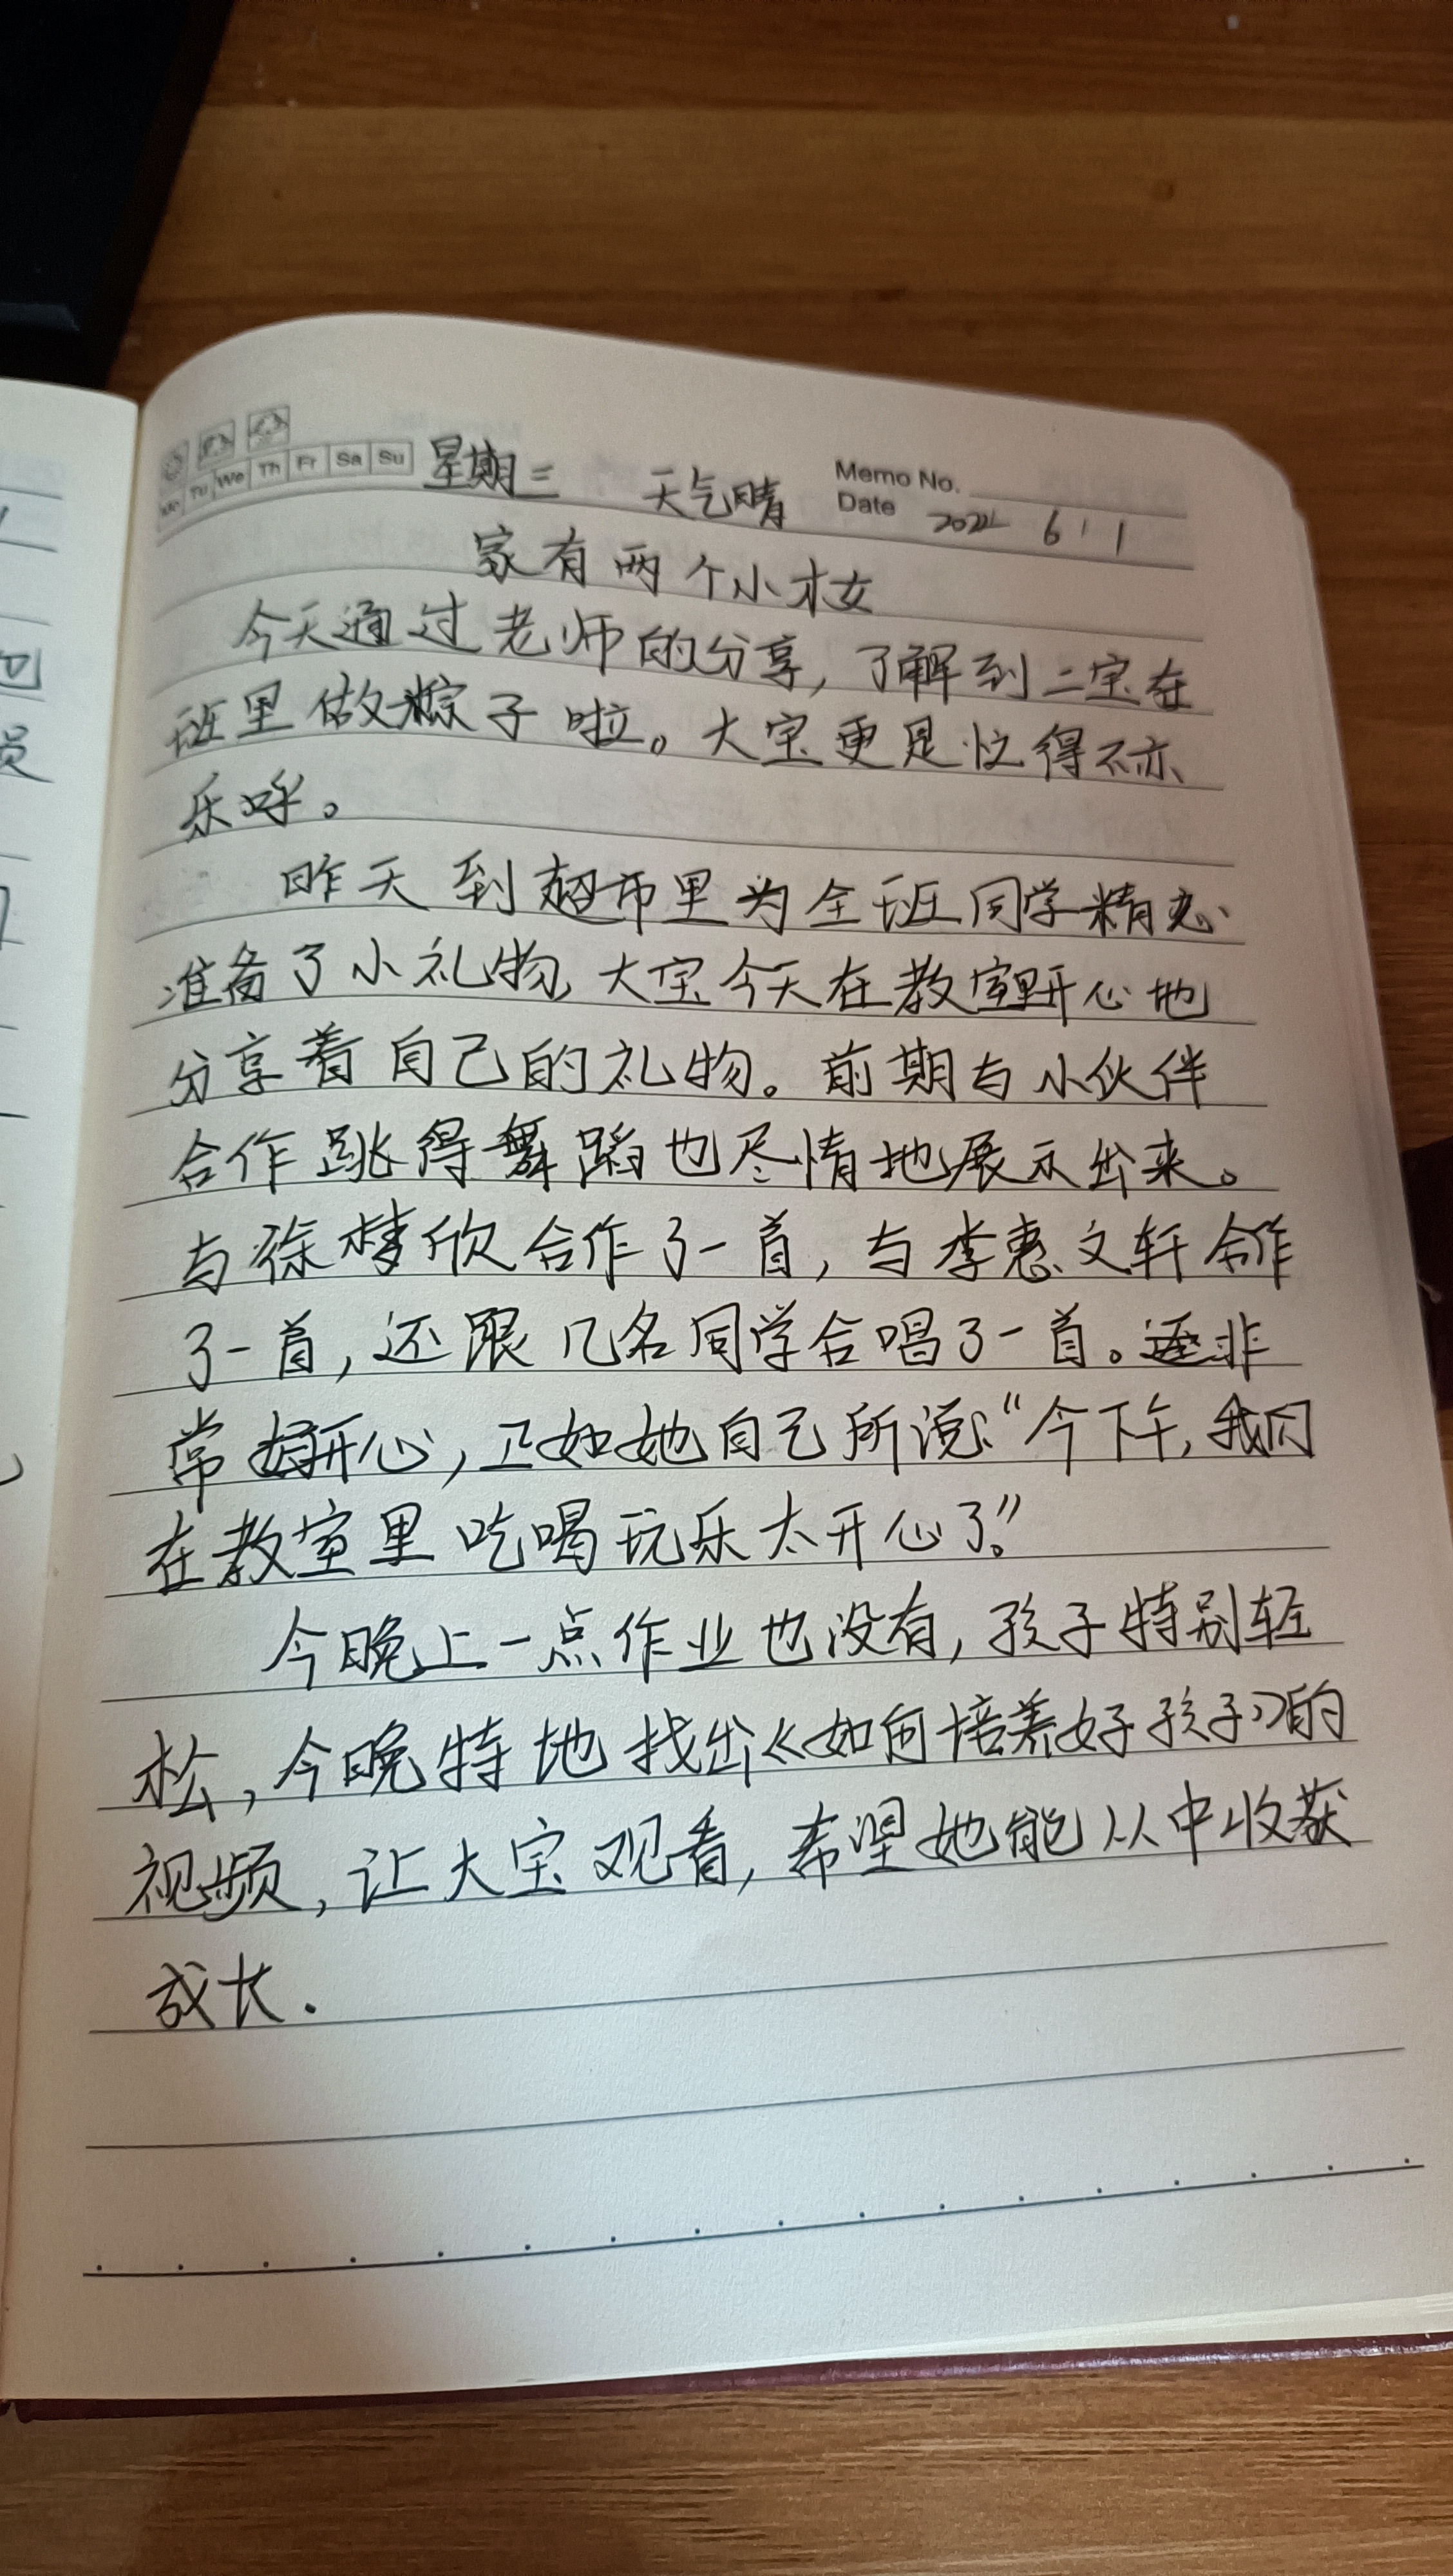 Mo Tu We Th Fr Sa Su 星期三 天气晴 Memo No.
Date 2022 6 1
家有两个小才女
今天通过老师的分享,了解到二宝在
班里做粽子啦。大宝更是忙得不亦
乐呼。
昨天到超市里为全班同学精心
准备了小礼物,大宝今天在教室里开心地
分享着自己的礼物。前期与小伙伴
合作跳得舞蹈也尽情地展示出来。
与徐梦欣合作了一首,与李惠文轩合作
了一首,还跟几名同学合唱了一首。非
常开心,正如她自己所说:“今下午,我们
在教室里吃喝玩乐太开心了。”
今晚上一点作业也没有,孩子特别轻
松,今晚特地找出《如何培养好孩子》的
视频,让大宝观看,希望她能从中收获
成长.